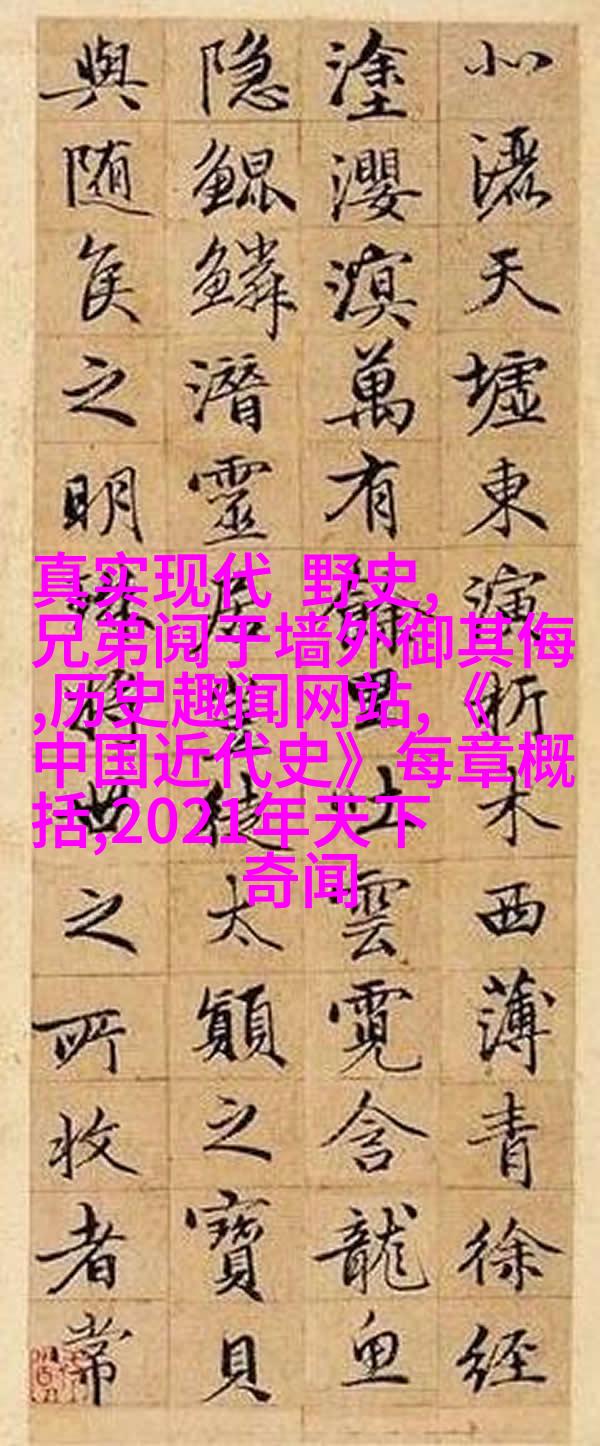 北灑天墟東演析木西薄青徐經
塗瀴溟萬有餘里吐雲霓含龍魚
隐鯤鱗潛靈居豈徒太顛之寶貝
與随侯之明珠將世之所收者常
真实现代 野史,
兄弟阋于墙外御其侮
,历史趣闻网站,《
中国近代史》每章概
括,2021年天下
奇闻